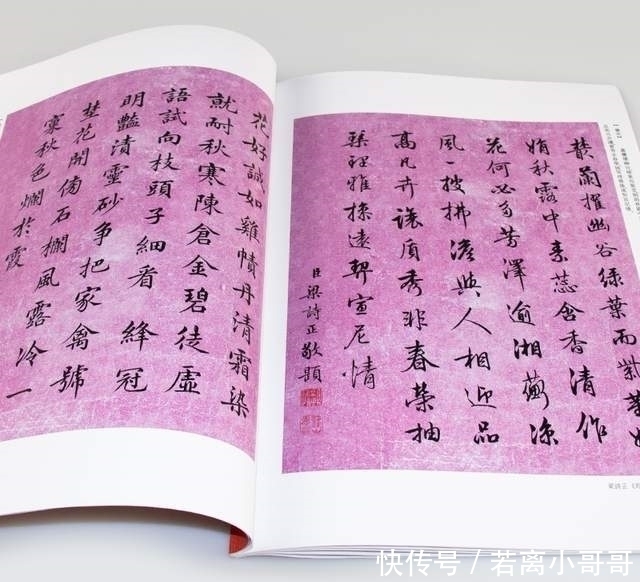 爾擢幽谷綠葉而紫莖娟
娟秋露中素蕊含香清作
花何必多芳澤逾湘蘅涼
風一披拂澹與人相迎品
高凡卉讓質秀非春榮抽
琴理雅操遠契宣尼情
臣梁詩正敬題
花好誠如雞幘丹清霜染
就耐秋寒陳倉金碧徒虛
語試向枝頭子細看 絳冠
明豔漬靈砂爭把家禽號
埜花開傍石欄風露冷一
窠秋色爛於霞
快传号 / 若离小哥哥